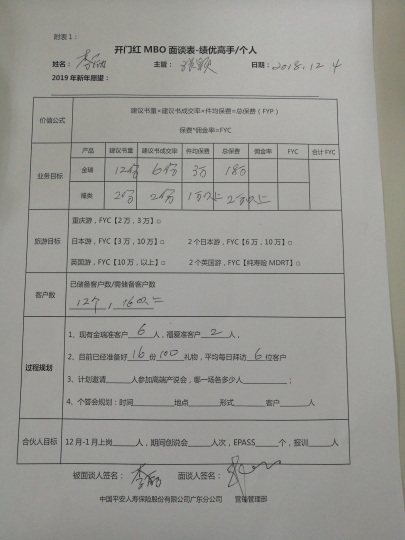 附表1：
开门红 MBO 面谈表-绩优高手/个人
姓名： 主管：张颖 日期：2018.12 4
2019 年新年愿望：
价值公式
建议书量×建议书成交率×件均保费=总保费（FYP）
保费*佣金率=FYC
业务目标
产品 建议书量 建议书成交率 件均保费 总保费 佣金率 FYC 合计 FYC
金瑞 12份 6份 3万 18万
福类 2份 2份 1万以上 2万以上
旅游目标
重庆游，FYC【2 万，3 万】□
日本游，FYC【3 万，10 万】□ 2 个日本游，FYC【6 万，10 万】□
英国游，FYC【10 万，以上】□ 2 个英国游，FYC【纯寿险 MDRT】□
客户数
已储备客户数/需储备客户数
12个，16以上
过程规划
1、现有金瑞准客户6人，福夏准客户2人，
2、目前已经准备好16份100礼物，平均每日拜访6位客户
3、计划邀请____人参加高端产说会，哪一场各多少人____；
4、个答会规划：时间____地点____形式____客户____人
合伙人目标
12 月-1 月上岗____人，期间创说会____人次，EPASS____个，报训____人
被面谈人签名： 面谈人签名：
中国平安人寿保险股份有限公司广东分公司 营销管理部